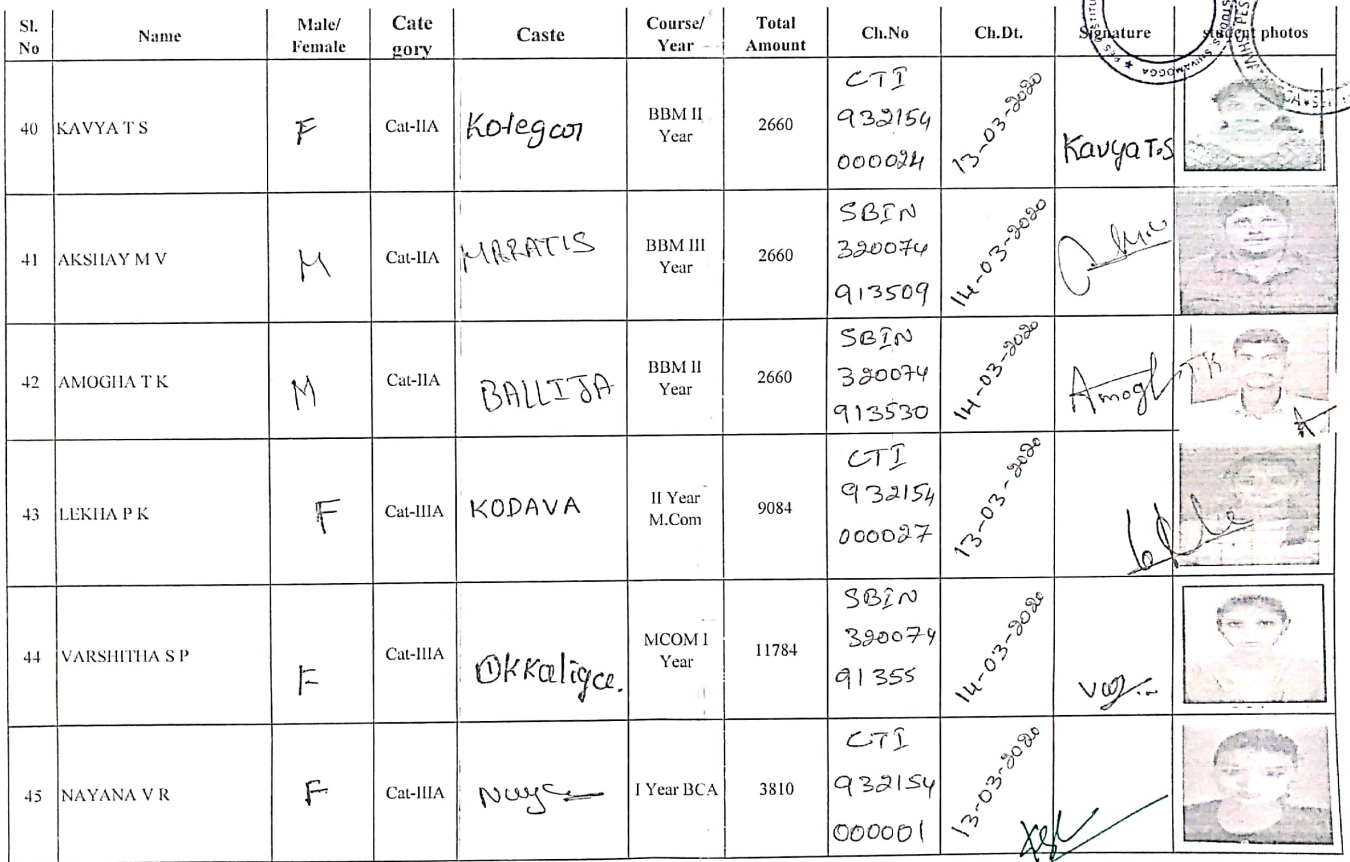 Sl. No Name Male/ Female Cate gory Caste Course/ Year Total Amount Ch.No Ch.Dt. Signature student photos
40 KAVYA T S F Cat-IIA Kotegcor BBM II Year 2660 CTI 932154 000024 13-03-2020 Kavya T.S
41 AKSHAY M V M Cat-IIA MARATIS BBM III Year 2660 SBIN 320074 913509 14-03-2020
42 AMOGHA T K M Cat-IIA BALLIJA BBM II Year 2660 SBIN 320074 913530 14-03-2020 Amogh T K
43 LEKHA P K F Cat-IIIA KODAVA II Year M.Com 9084 CTI 932154 000027 13-03-2020
44 VARSHITHA S P F Cat-IIIA MCOM I Year 11784 SBIN 320074 91355 14-03-2020
45 NAYANA V R F Cat-IIIA I Year BCA 3810 CTI 932154 000001 13-03-2020